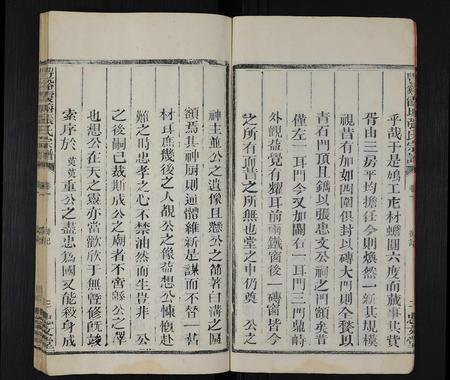 乎哉于是鳩工庀材蟾圖六度而蕆事其費
皆由三房平均擔任今則煥然一新其規模
視昔有加如四圍俱封以磚大門則全甃以
青石門頂且鐫以張忠文公祠之門額矣昔
僅左一耳門今又加闢右一耳門三門鼎峙
外觀益覺有耀耳前兩鐵窗後一磚窗皆今
之所有而昔之所無也堂之中仍奠 公之
神主並公之遺像且懸公之舊著白溝之圖
額焉其神厨則運體維新是謀而不替一舊
材耳庶幾後之人覩公之像益想公慷慨赴
難之時忠孝之心不禁油然而生豈非 公
之後嗣已哉斯成公之廟者不啻繇公之澤
也想公在天之靈亦當歡欣于無曁修旣竣
索序於 莫莫重公之盡忠為國又能殺身成